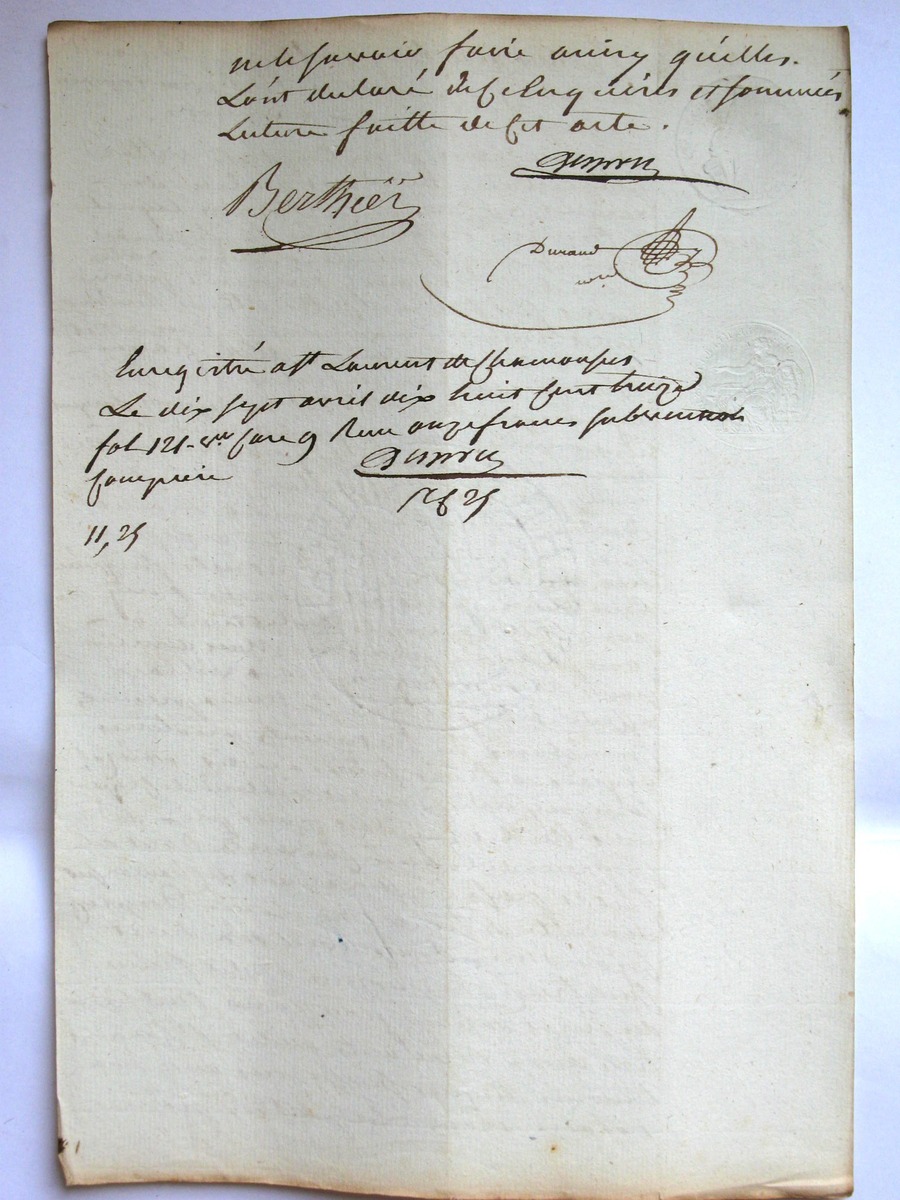 ne le savoir faire ainsy quelles
L'ont declaré de ce Enquéris et sommées
Lecture faitte de cet acte.
Berthier
Durand
nore
Enregistré a St Laurent de Chamousses
Le dix sept avril dix huit cent treize
fol 121 - vo Case 9 Recu onze francs subvention
comprise
11,25